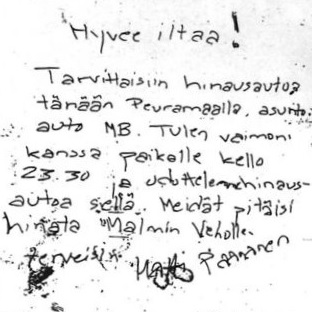 Hyvee iltaa!
Tarvittaisiin hinausautoa
tänään Peuramaalla, asunto-
auto MB. Tulen vaimoni
kanssa paikalle kello
23.30 ja odottelemme hinaus-
autoa siellä. Meidät pitäisi
hinata Malmin Veholle.
terveisin Matti Paananen